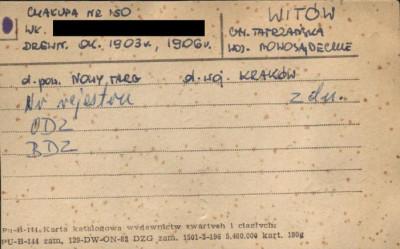 CHAŁUPA NR 150
WK.
DREWN. OK. 1903r., 1906r.
WITÓW
GM. TATRZAŃSKA
WOJ. NOWOSĄDECKIE
d. pow. NOWY TARG d. woj. KRAKÓW
Nr rejestru z dn.
ODZ
BDZ
Pu-B-144. Karta katalogowa wydawnictw zwartych i ciągłych:
PU-B-144 zam. 129-DW-ON-82 DZG zam. 1501-3-196 5.400.000 kart. 180g